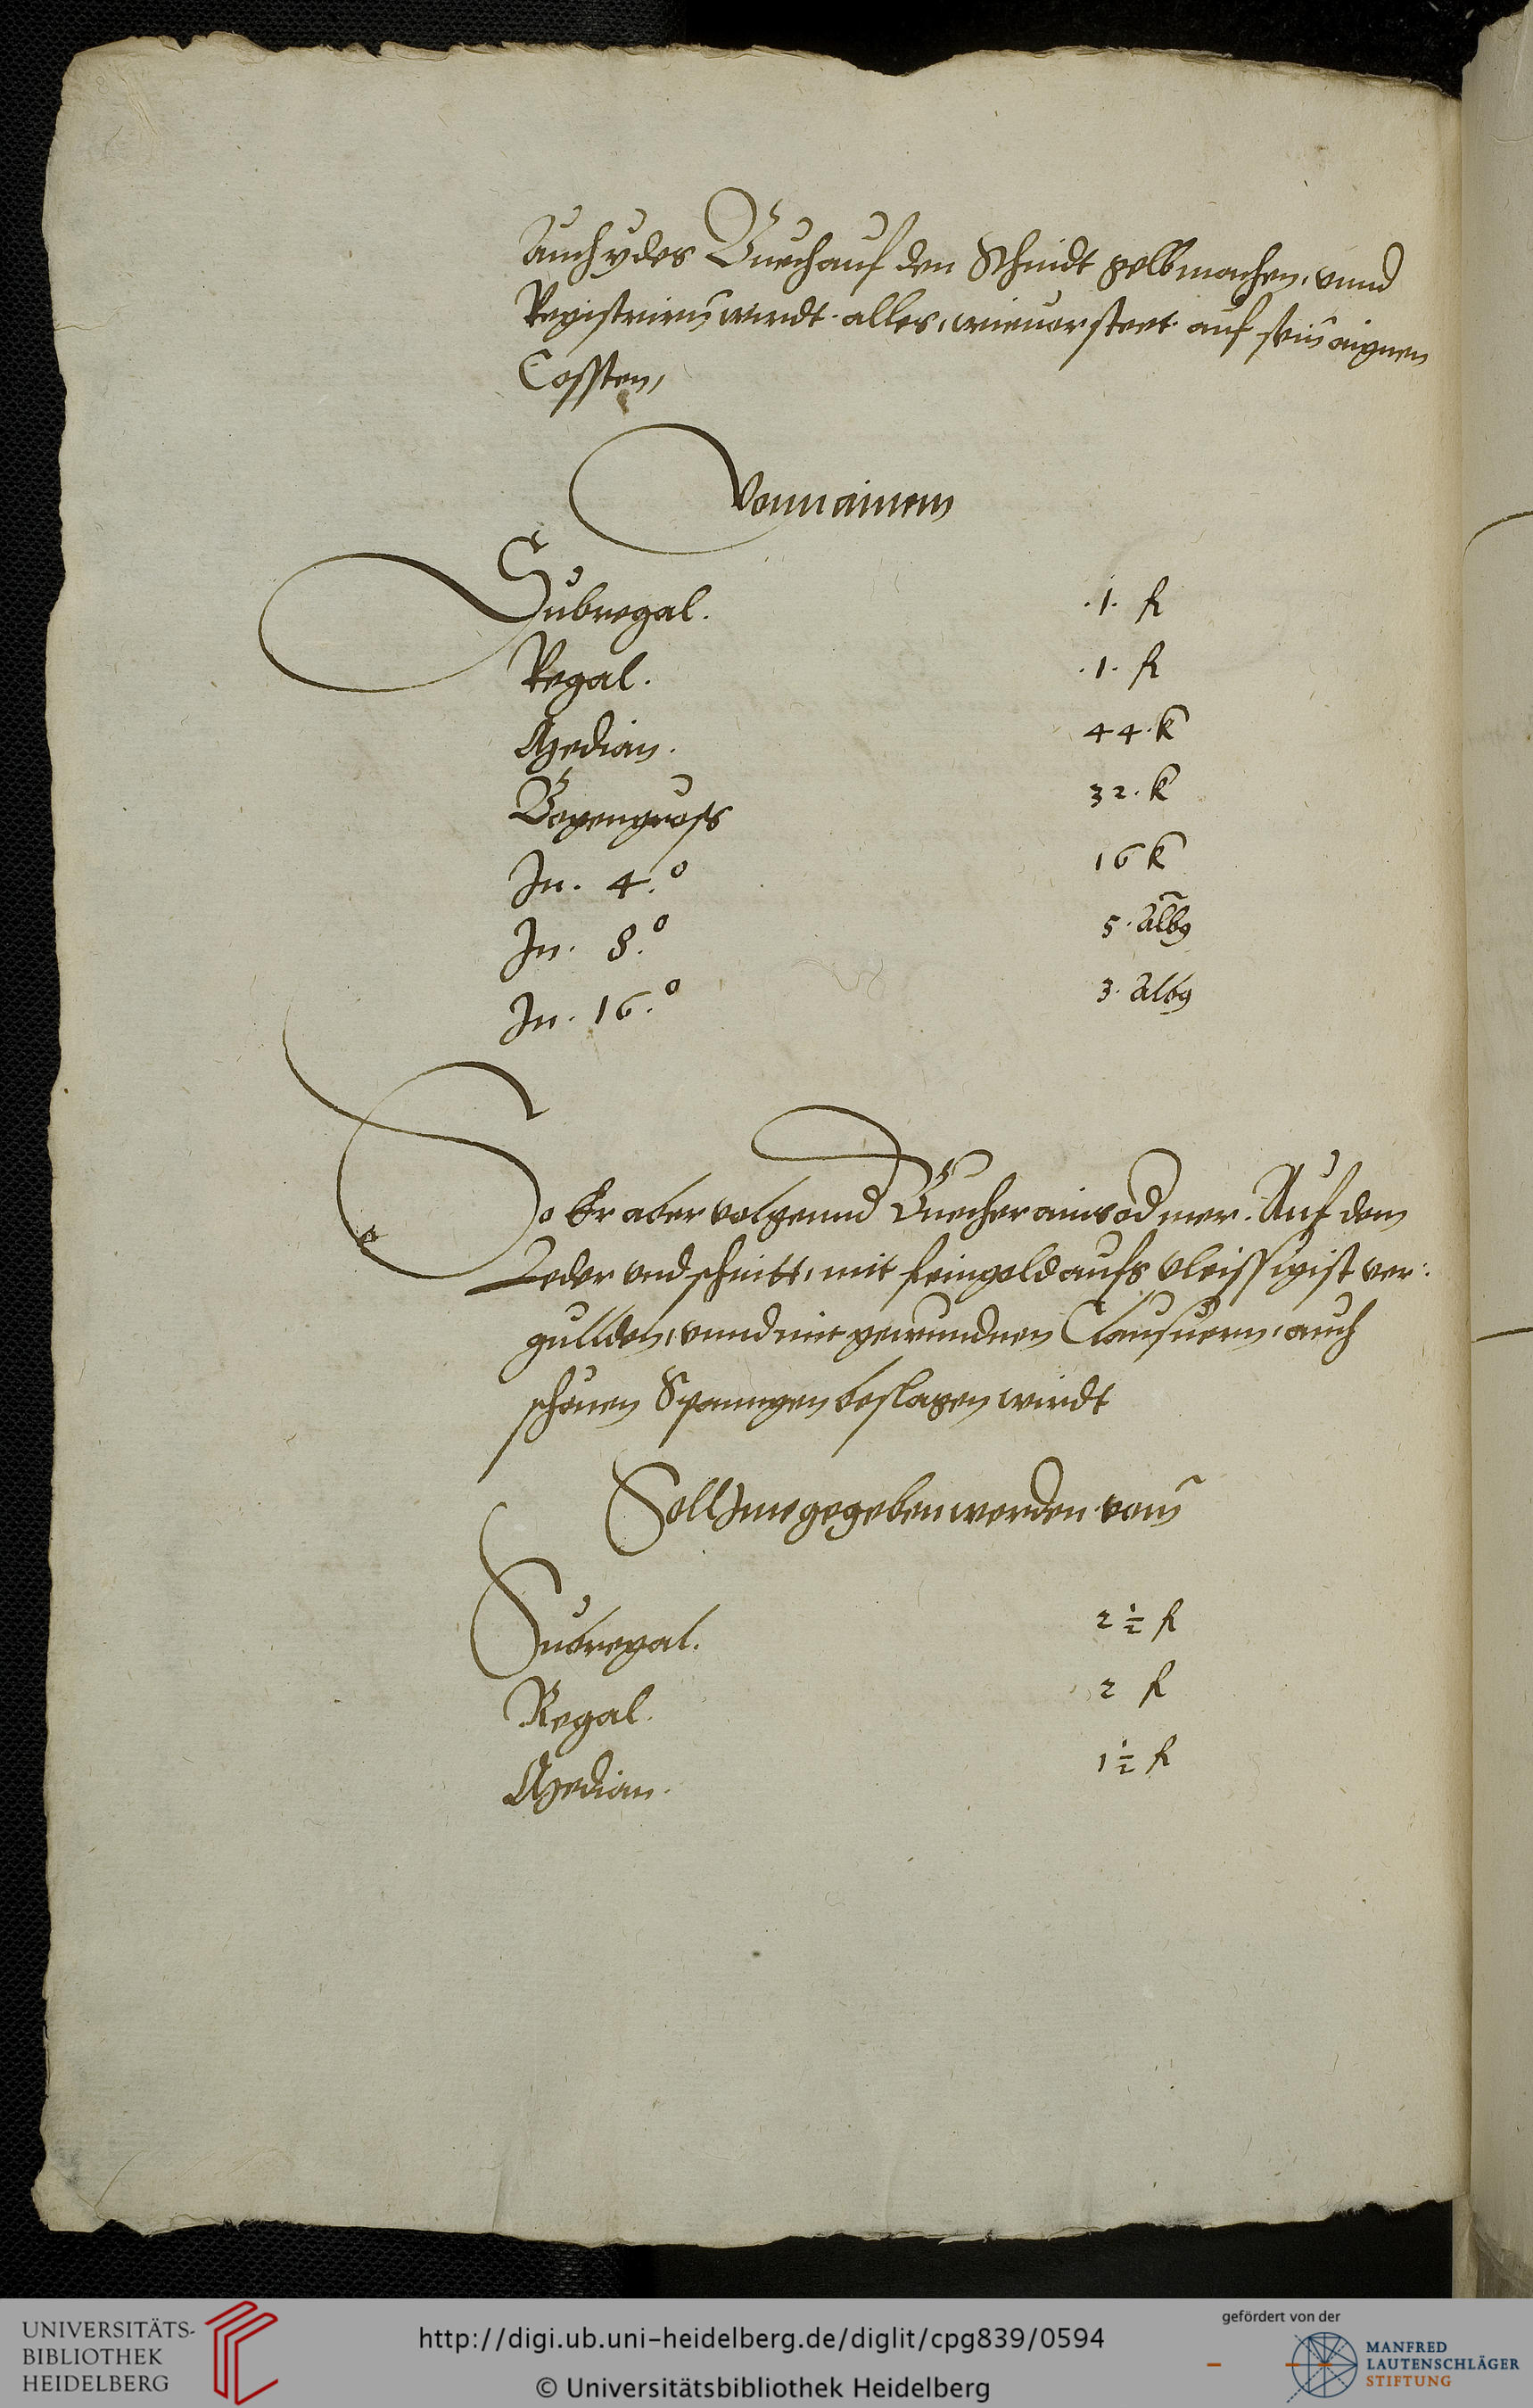 Auch ydes Buech auf den Schnidt gelb machen, vnnd
Registriern̄ wirdt. alles, wie vor steet. auf sein̄ aignen
Cossten,
Vonn ainem
Subregal. .1. fl
Regal. .1. fl
Median. 44. k
Bogengross 32. k
In. 4.o 16 k
In. 8.o 5. Alb9
In. 16.o 3. Alb9
So Er aber volgennd Buecher ains od mer. Auf dem
Leder vnd schnitt, mit feingold aufs vleissigist ver:
gullden, vnnd mit gewundnen Clausuern, auch
schönen Spanngen beslagen wirdt
Soll Ime gegeben werden. vom̄
Subregal. 2 1/2 fl
Regal. 2 fl
Median. 1 1/2 fl
UNIVERSITÄTS-
BIBLIOTHEK
HEIDELBERG
http://digi.ub.uni-heidelberg.de/diglit/cpg839/0594
© Universitätsbibliothek Heidelberg
gefördert von der
MANFRED
LAUTENSCHLÄGER
STIFTUNG